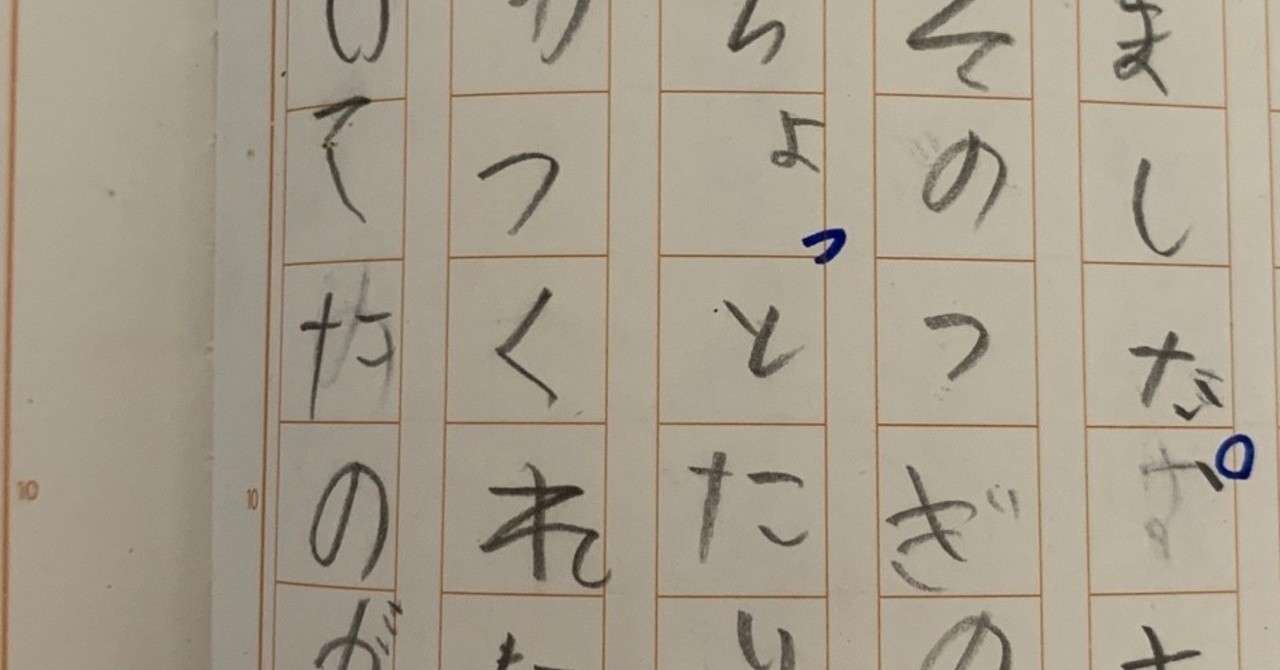 ました。
そのつぎの
ちょっとたり
かつくれた
いてたのが
10
10